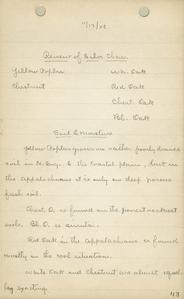 Review of Silvics
Yellow Poplar Wh. Oak
Chestnut Red Oak
Chest. Oak
Blk. Oak
Yellow Poplar grows on rather poorly drained
soil in N. Eng. & the Coastal plains, but in
the Appalachians it is only on deep porous
fresh soil.
Chest. O. is found on the poorest
soils. Blk. O. is similar.
Red Oak in the Appalachians is found
mostly in the cool situations.
White Oak and Chestnut are almost equal-
ly exacting.